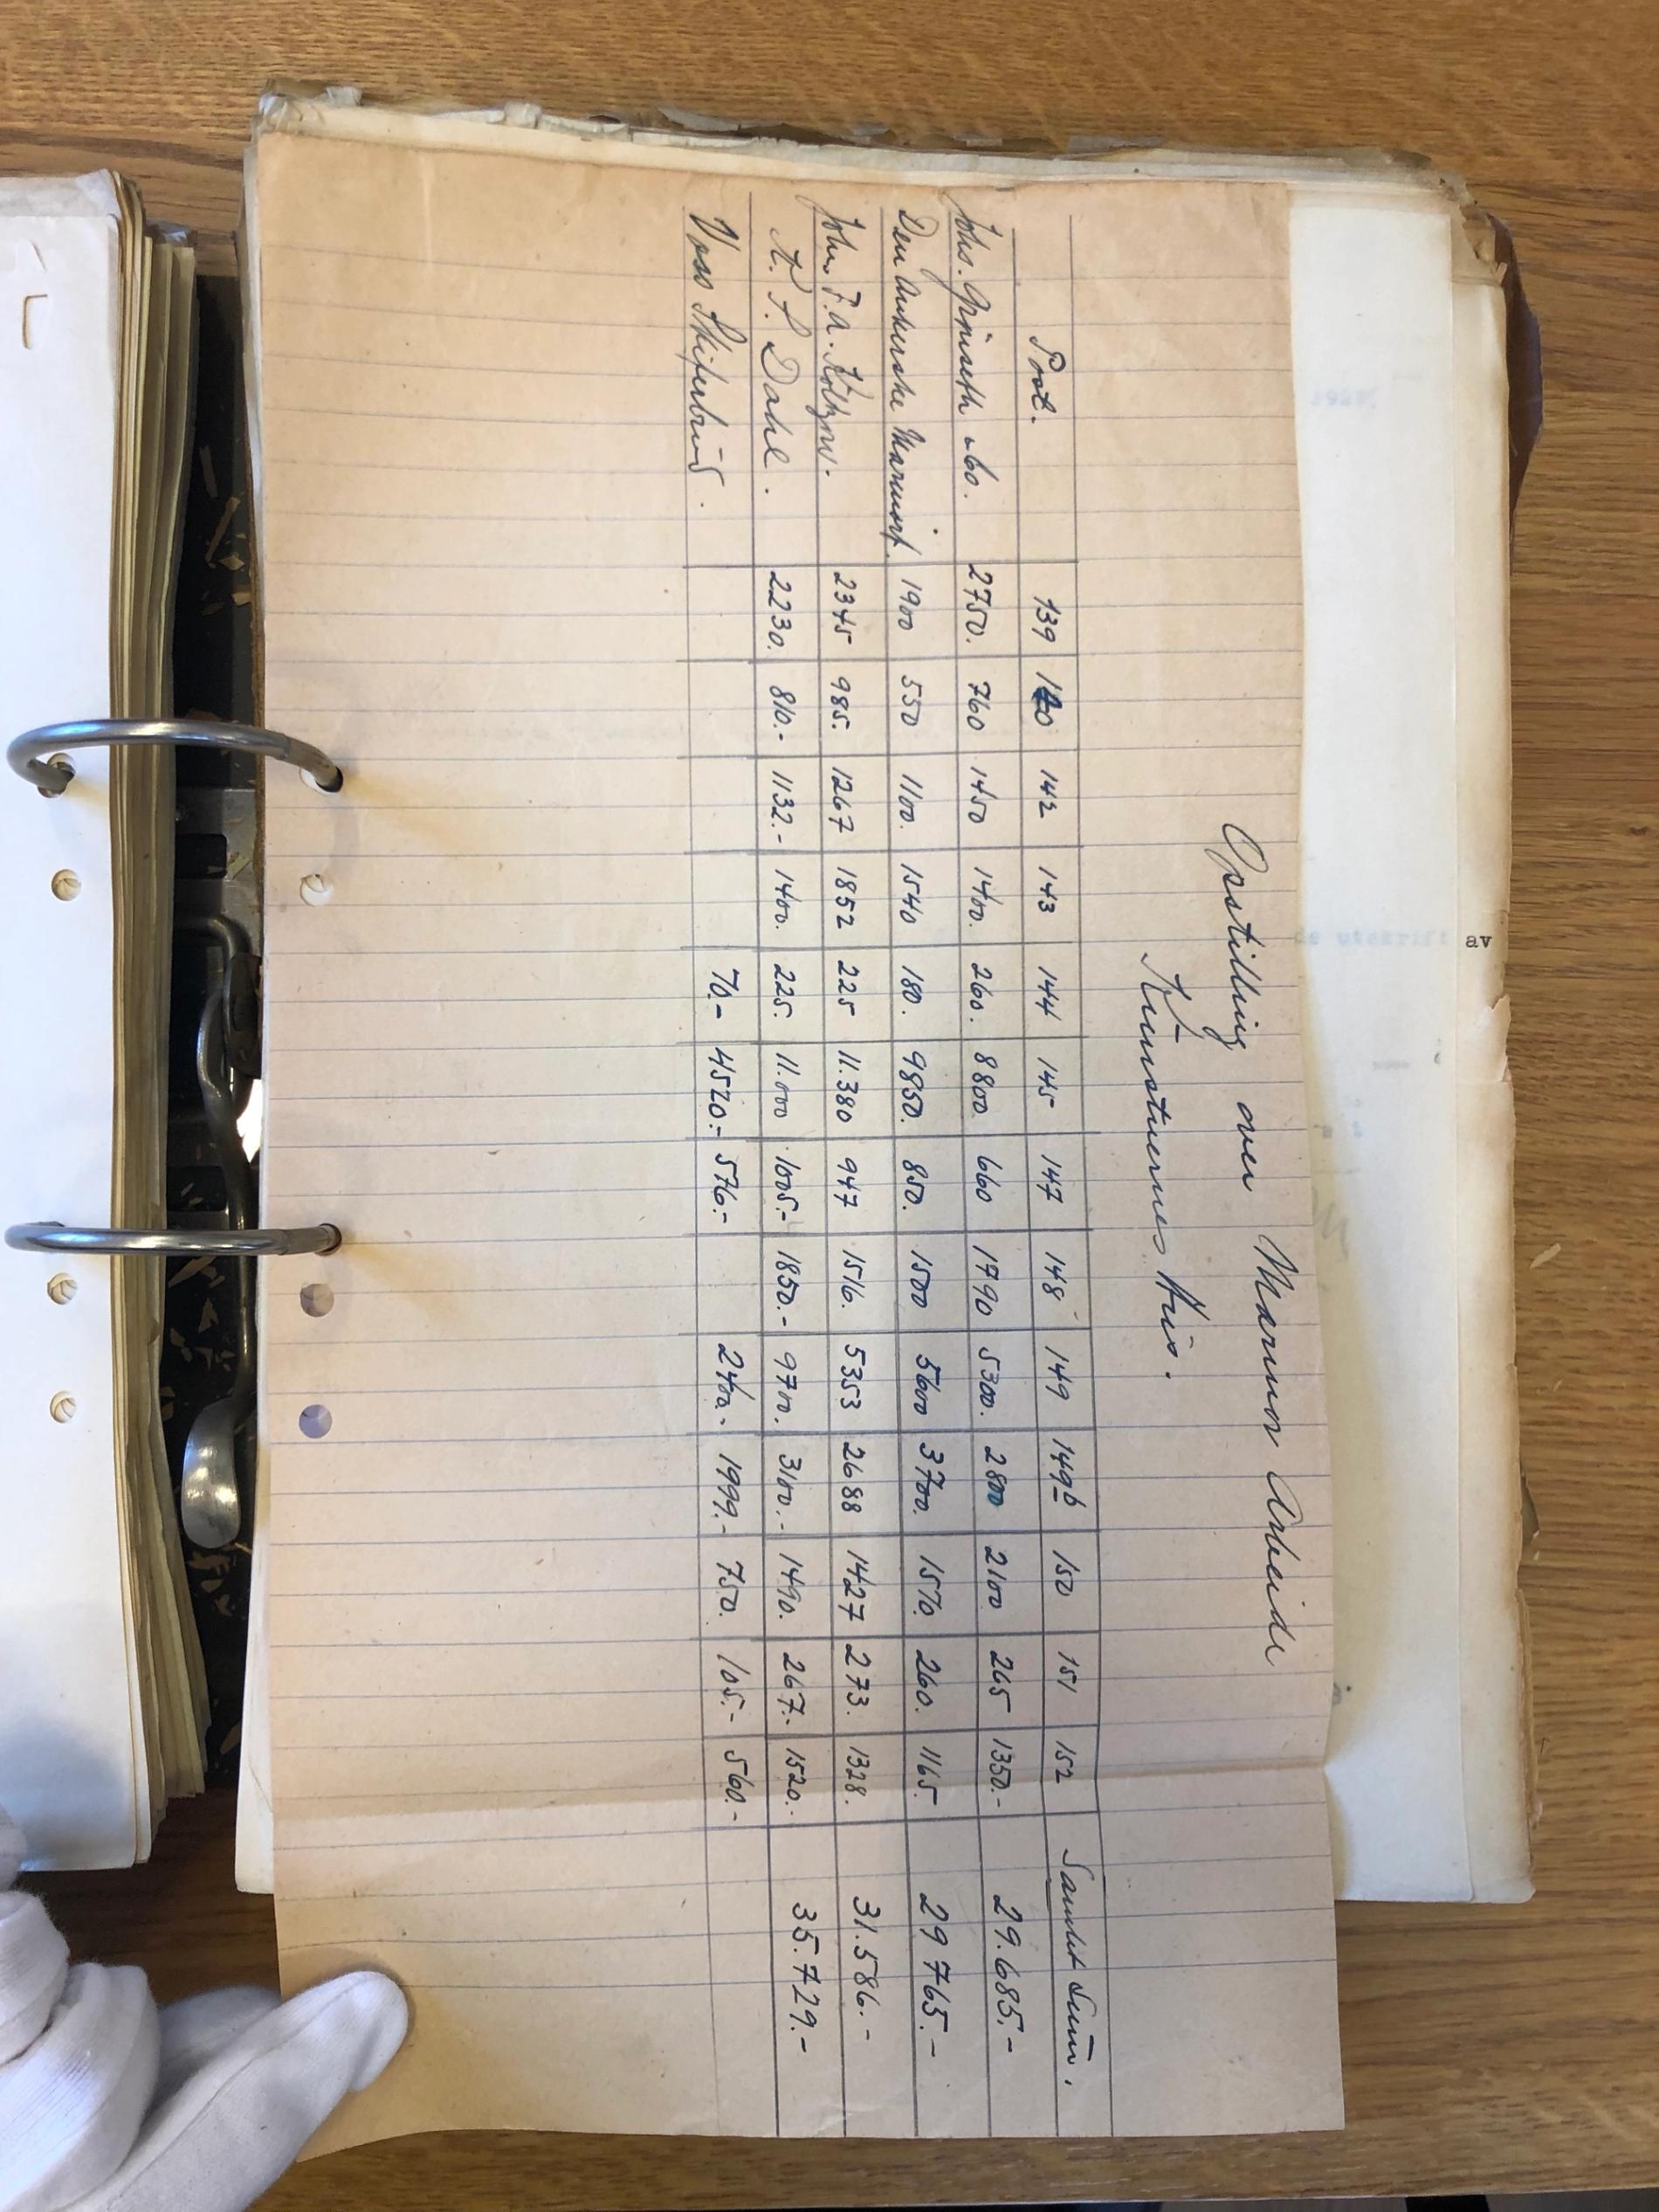 Opstilling over Marmor Arbeide
Kunstnernes Hus.
Post. 139 140 142 143 144 145 147 148 149 149b 150 151 152 Samlet Sum.
Johs. Grønseth &Co. 2750. 760 1450 1400. 260. 8800 660 1790 5300. 2800 2100 265 1350.- 29.685.-
Den Ankerske Marmorf. 1900 550 1100. 1540 180. 9850. 850. 1500 5600 3700. 1570. 260. 1165.- 29765.-
John F.A. 2345 985. 1267 1852 225 11.380 947 1516. 5353 2688 1427 273. 1328. 31.586.-
A. S. Dahl. 2230. 810.- 1132.- 1400. 225. 11.000 1005.- 1850.- 9700. 3100.- 1490. 267.- 1520.- 35.729.-
Voss Skiferbrud. 70.- 4520.- 576.- 2400.- 1999.- 750. 105.- 560.-
de utskrift av